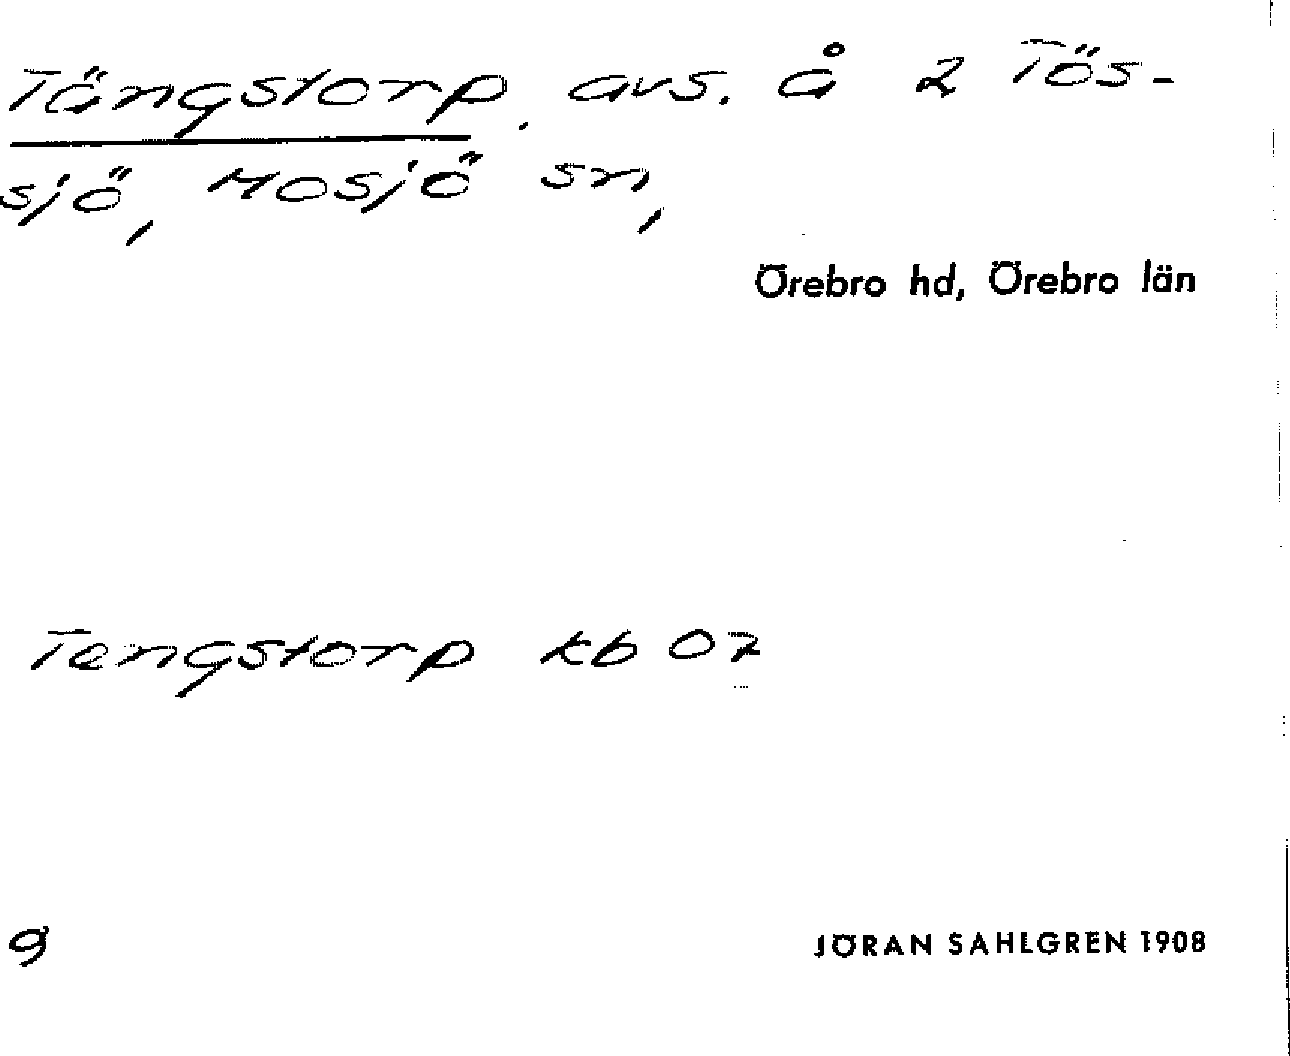 Tängstorp, avs. å 2 Tös-
sjö, Mosjö sn,
Örebro hd, Örebro län
Tengstorp kb 07
9
JÖRAN SAHLGREN 1908